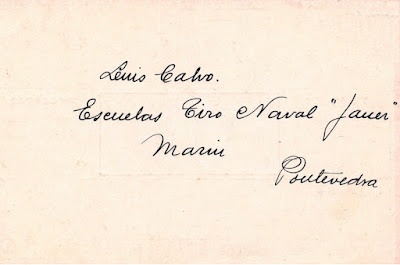 Luis Calvo.
Escuelas Tiro Naval "Janer"
Marin
Pontevedra